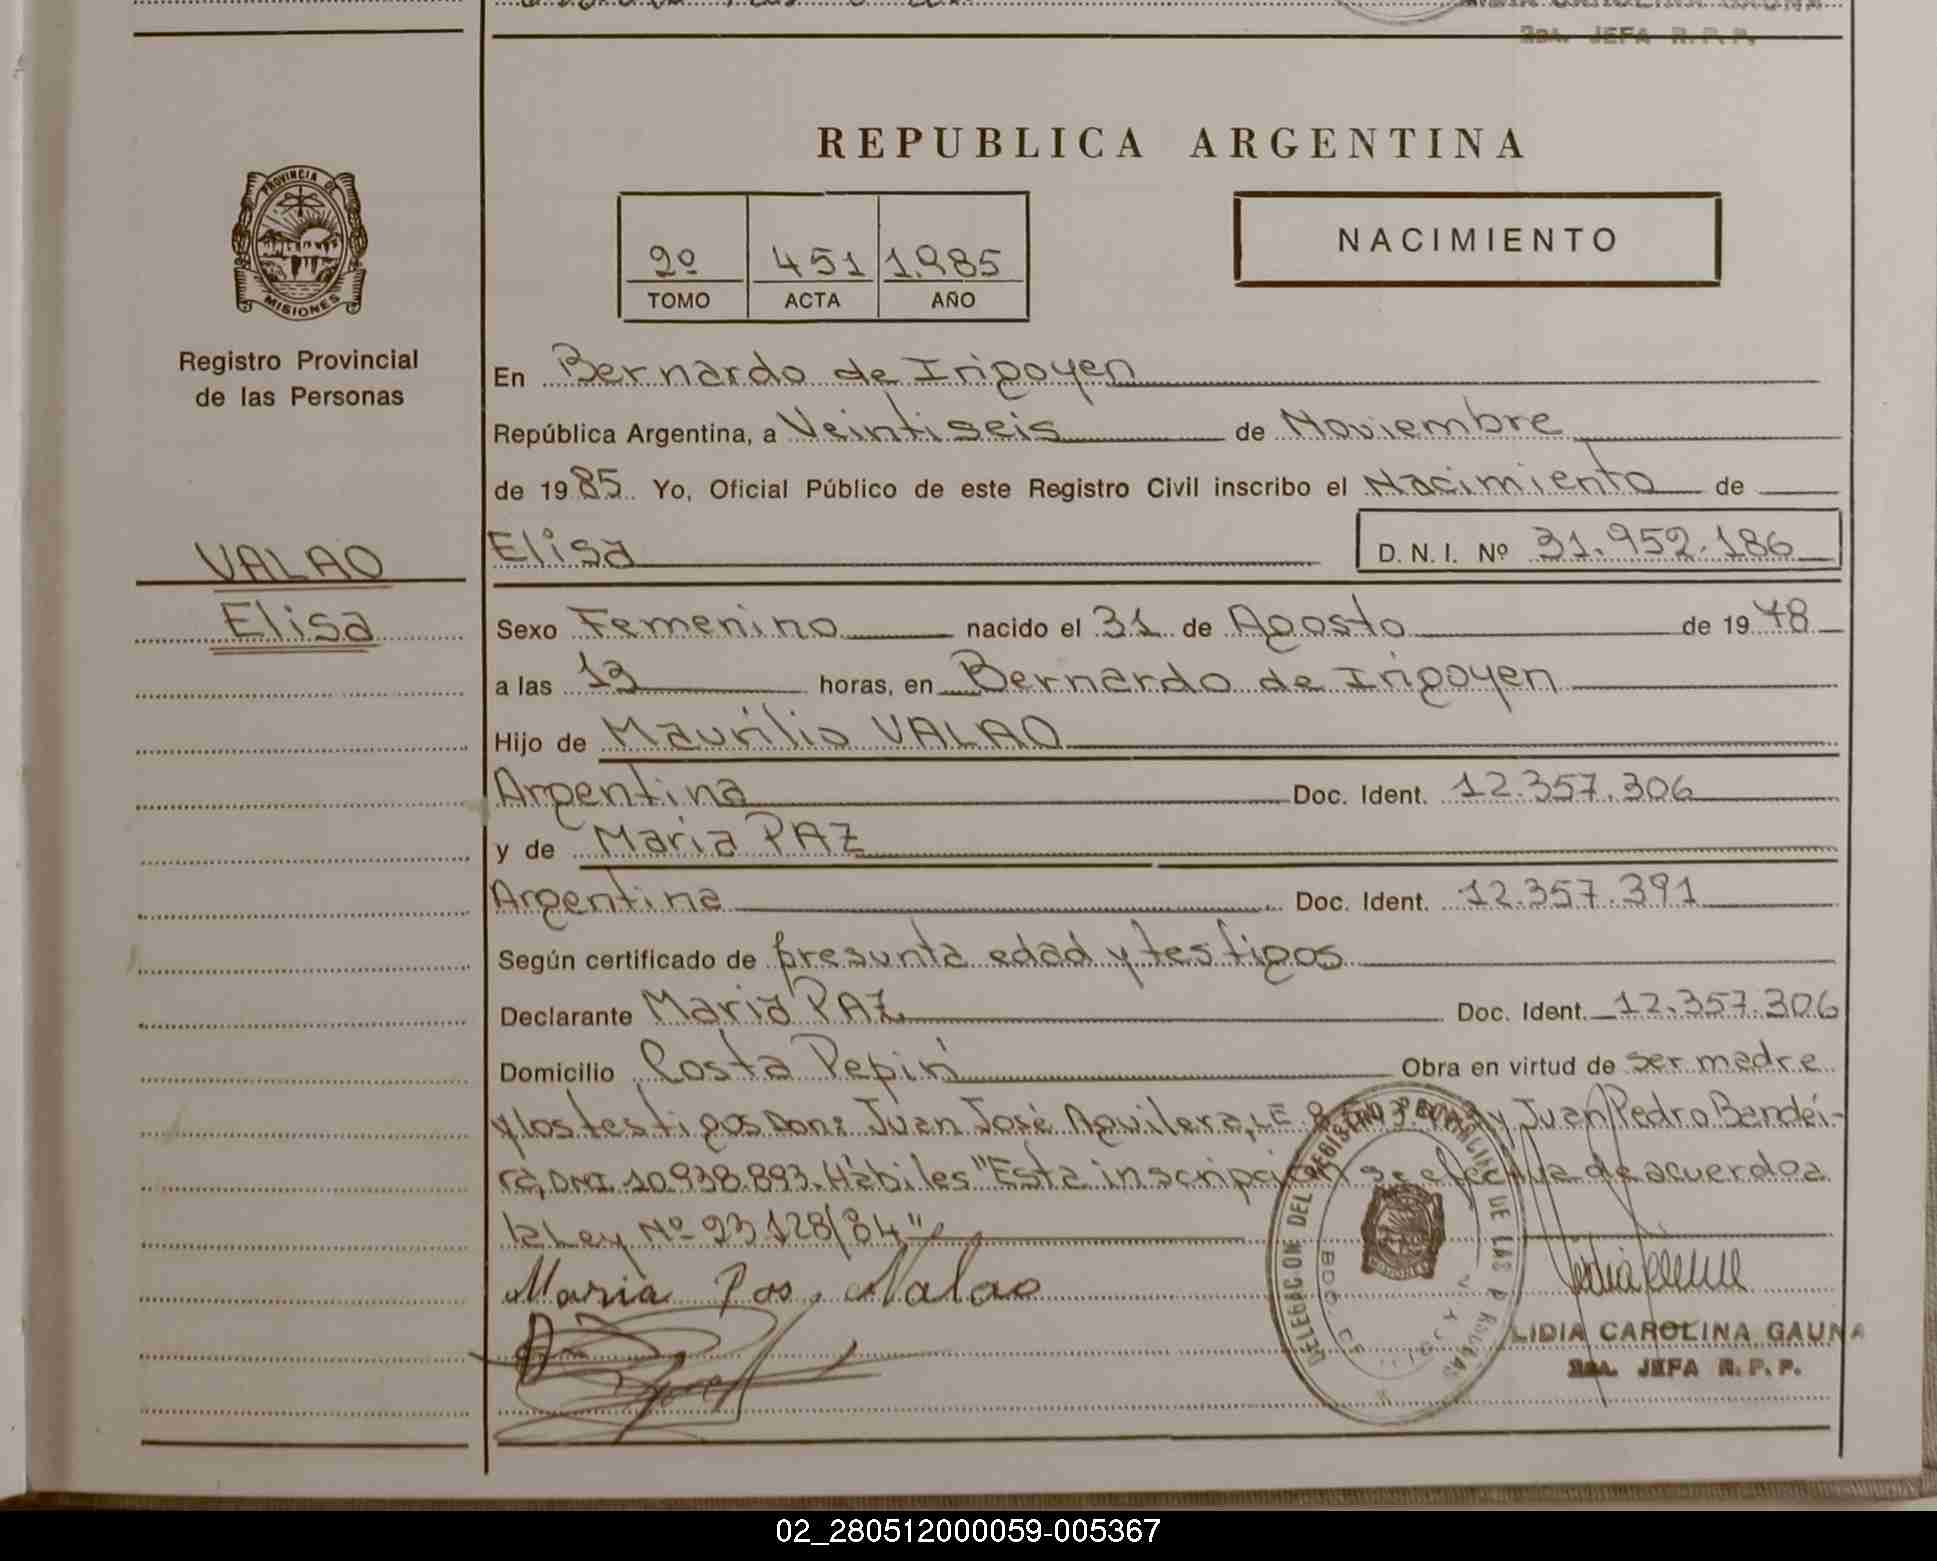 LIDIA CAROLINA GAUNA
2da. JEFA R.P.P.
REPUBLICA ARGENTINA
PROVINCIA DE
MISIONES
2º 451 1.985
TOMO ACTA AÑO
NACIMIENTO
Registro Provincial
de las Personas
En Bernardo de Irigoyen
República Argentina, a Veintiseis de Noviembre
de 1985. Yo, Oficial Público de este Registro Civil inscribo el Nacimiento de
VALAO
Elisa
Elisa D. N. I. Nº 31.952.186
Sexo Femenino nacido el 31 de Agosto de 1978
a las 13 horas, en Bernardo de Irigoyen
Hijo de Maurilio VALAO
Argentina Doc. Ident. 12.357.306
y de Maria PAZ
Argentina Doc. Ident. 12.357.391
Según certificado de presunta edad y testigos
Declarante Maria PAZ Doc. Ident. 12.357.306
Domicilio Costa Pepirí Obra en virtud de ser madre
y los testigos Don: Juan José Aguilera, LE 8. y Juan Pedro Bandei-
ra, DNI 10.938.893. Hábiles "Esta inscripción se efectua de acuerdo a
la Ley Nº 23 128/84"
Maria Pas Valao
DELEGACION DEL REGISTRO PROVINCIAL DE LAS PERSONAS
BDO. DE
LIDIA CAROLINA GAUNA
2da. JEFA R.P.P.
02_280512000059-005367